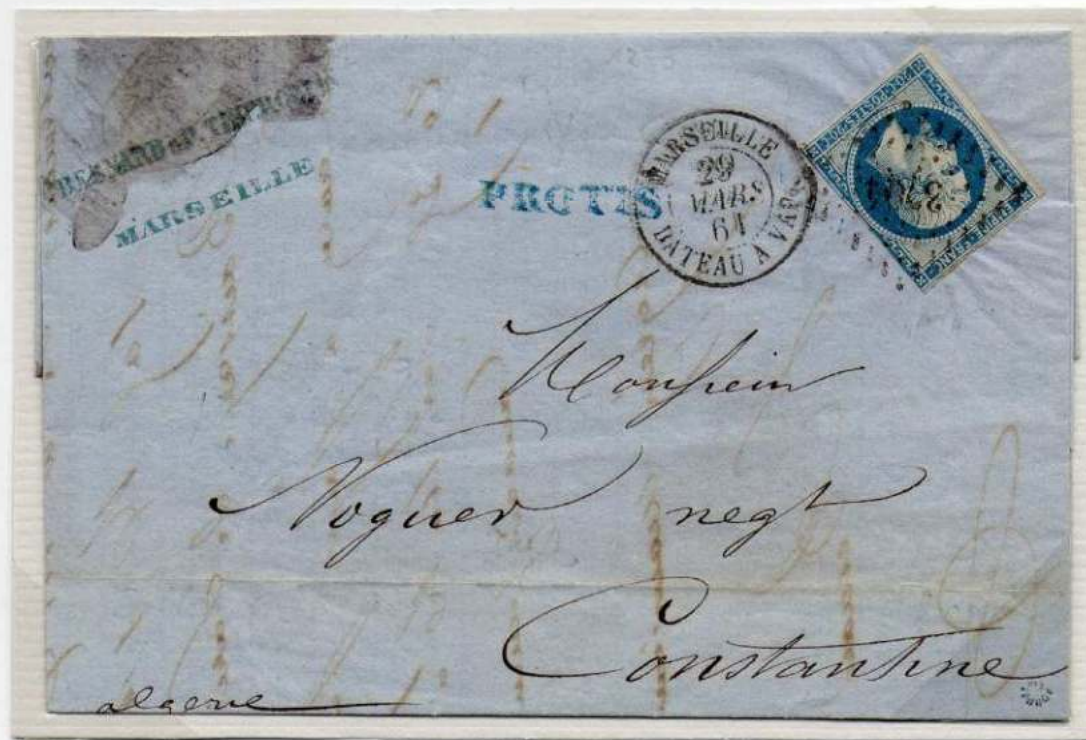 MARSEILLE
PROTIS
MARSEILLE
29
MARS
61
BATEAU A VAP
20C·POSTES·20C
Monsieur
Noguer negt
Constantine
algerie